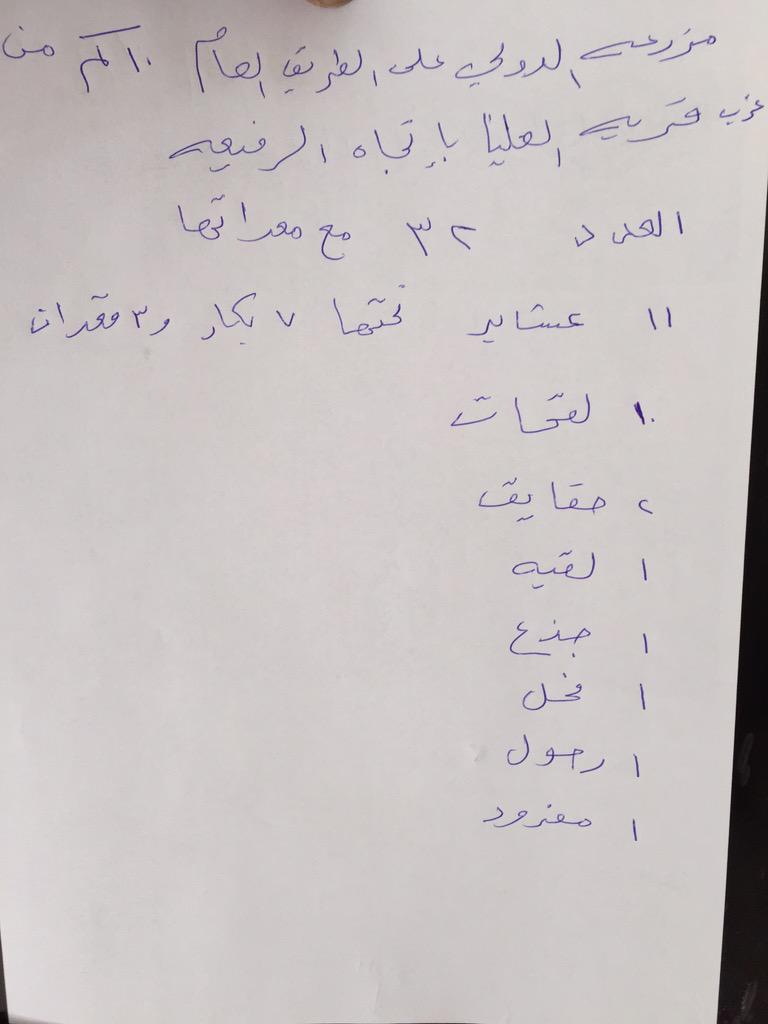 مزرعه الدولي على الطريق العام ١٠ كم من
غرب قريه العليا بإتجاه الرفيعه
العدد ٣٢ مع معداتها
١١ عشاير تحتها ٧ بكار و٣ قعدان
١٠ لقحات
٢ حقايق
١ لقيه
١ جذع
١ فحل
١ رحول
١ مفرود